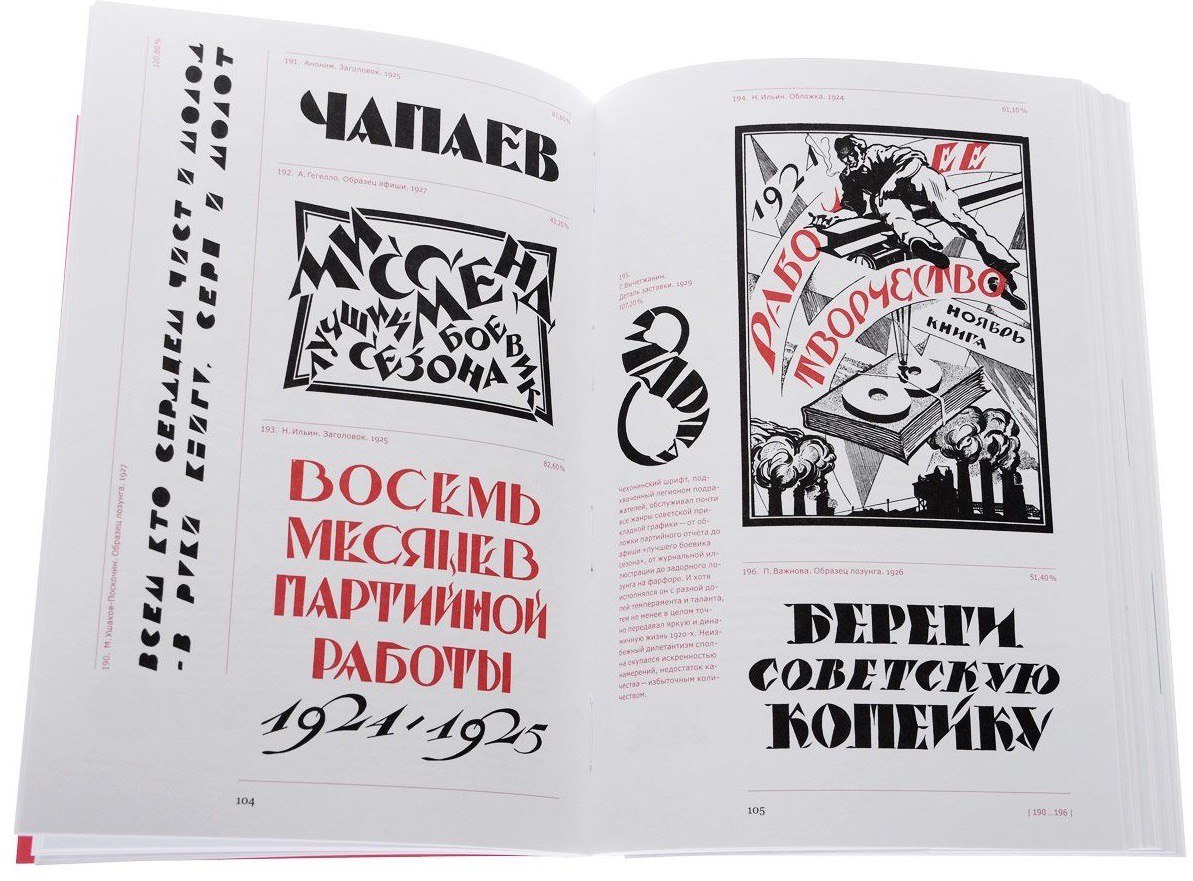 120,80%
ВСЕМ КТО СЕРДЦЕМ ЧИСТ И МОЛОД
- В РУКИ КНИГУ, СЕРП И МОЛОТ
190. М. Ушаков-Поскочин. Образец лозунга. 1927
191. Аноним. Заголовок. 1925
87,85%
ЧАПАЕВ
192. А. Гегелло. Образец афиши. 1927
43,25%
МИСС МЕНД
ЛУЧШИЙ БОЕВИК
СЕЗОНА
193. Н. Ильин. Заголовок. 1925
82,60%
ВОСЕМЬ
МЕСЯЦЕВ
ПАРТИЙНОЙ
РАБОТЫ
1924-1925
104
194. Н. Ильин. Обложка. 1924
61,10%
1924
РАБОЧЕЕ
ТВОРЧЕСТВО
НОЯБРЬ
КНИГА
195.
Г. Вычегжанин.
Деталь заставки. 1929
107,20%
8 МАРТА
Чехонинский шрифт, под-
хваченный легионом подра-
жателей, обслуживал почти
все жанры советской при-
кладной графики — от об-
ложки партийного отчета до
афиши «лучшего боевика
сезона», от журнальной ил-
люстрации до задорного ло-
зунга на фарфоре. И хотя
исполнялся он с разной до-
лей темперамента и таланта,
тем не менее в целом точ-
но передавал яркую и дина-
мичную жизнь 1920-х. Неиз-
бежный дилетантизм спол-
на окупался искренностью
намерений, недостаток ка-
чества — избыточным коли-
чеством.
196. П. Важнова. Образец лозунга. 1926
51,40%
БЕРЕГИ
СОВЕТСКУЮ
КОПЕЙКУ
105
| 190...196 |